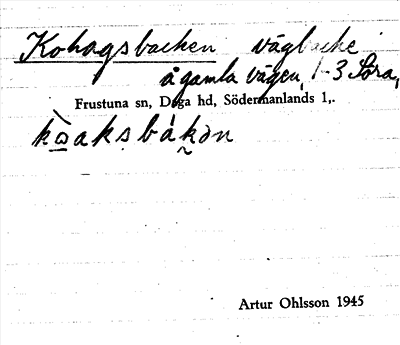 Kohagsbacken vägbacke
å gamla vägen, 1-3 Söra,
Frustuna sn, Daga hd, Södermanlands l,.
Artur Ohlsson 1945